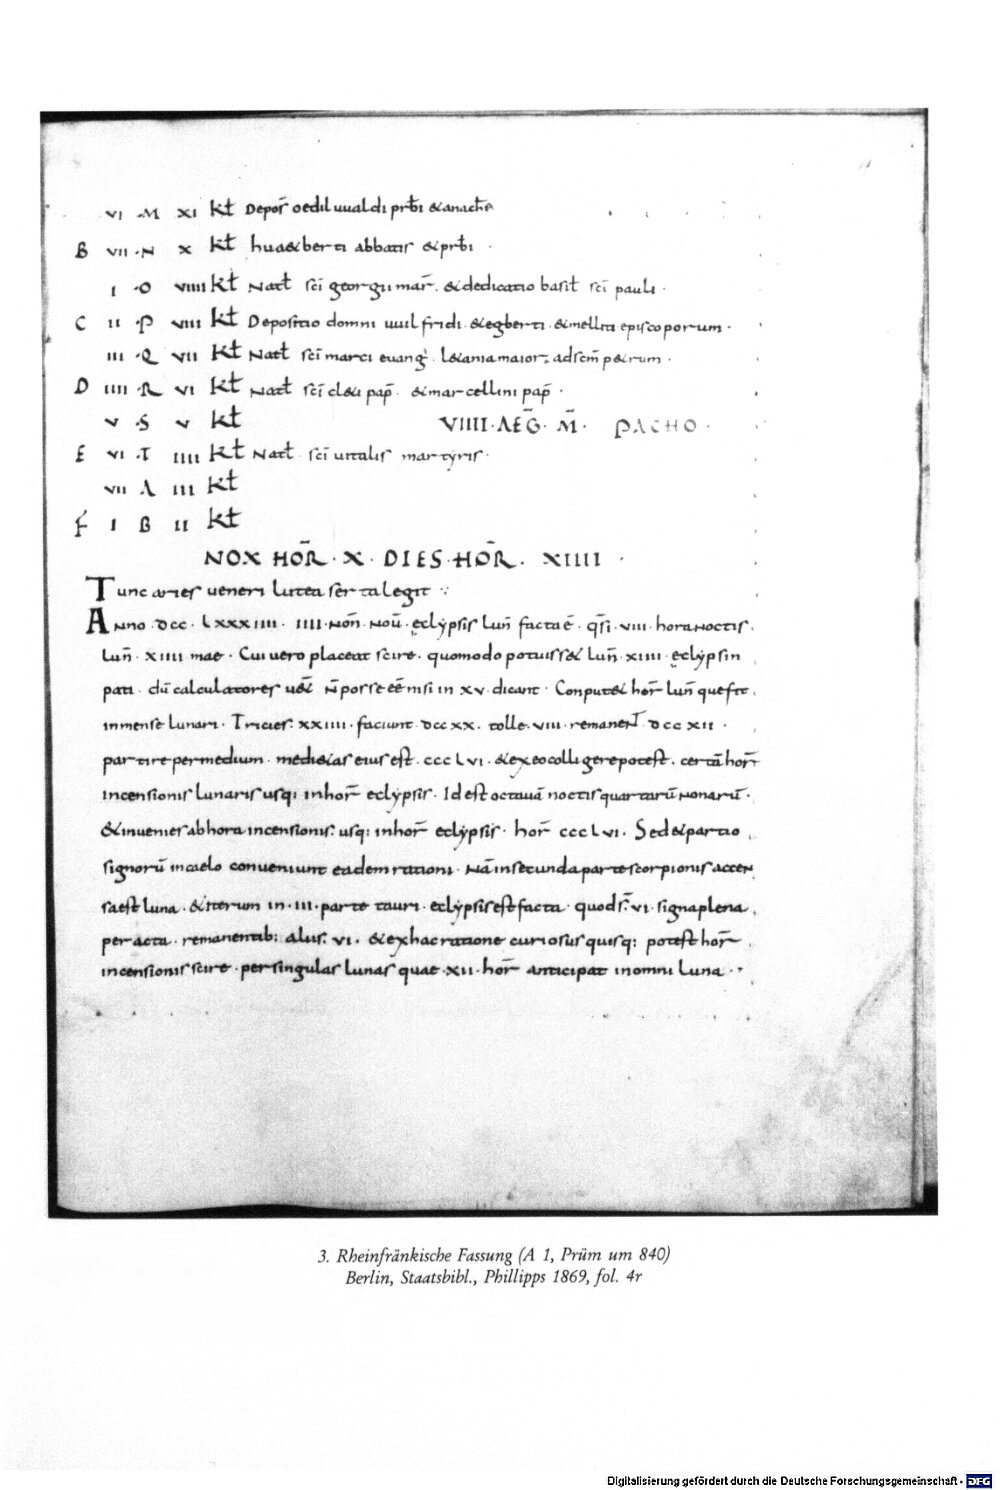 VI · M XI kł Depoſ̄ oediluualdi prƀi & anachł
B VII · N X kł huaetberti abbatis & prƀi ·
I · O VIIII kł Natł sc̄i georgii mar̄ . & dedicatio basił sc̄i pauli ·
C II · P VIII kł Depositio domni uuilfridi · & egberti · & melliti episcoporum ·
III · Q VII kł Natł sc̄i marci euanḡ · l&ania maior · ad sc̄m p&rum ·
D IIII · R VI kł Natł sc̄i cl&i pap̄ · & marcellini pap̄ ·
V · S V kł VIIII · AEḠ · M̄ · PACHO ·
E VI · T IIII kł Natł · sc̄i uitalis martẏris ·
VII A III kł
F I B II kł
NOX HOR̄ · X · DIES · HOR̄ · XIIII ·
Tunc aries ueneri lutea serta legit :·
Anno · DCC · LXXXIIII · IIII · Noñ · Noū · eclẏpsis luñ facta ē · qs̄i · VIII · hora noctis ·
luñ · XIIII · mae · Cui uero placeat scire · quomodo potuiss& luñ · XIIII · eclẏpsin
pati · dū calculatores u&̄ ñ posse eē nisi in XV · dicant · Conput& hor̄ luñ que fit ·
in mense lunari · Tricies · XXIIII · faciunt · DCCXX · tolle · VIII · remanent · DCCXII ·
partire per medium · medi&as eius est · CCCLVI · & ex eo colligere potest · certā hor̄
incensionis lunaris usq: in hor̄ eclẏpsis · Id est octauā noctis quartarū nonarū ·
& inuenies ab hora incensionis · usq: in hor̄ eclẏpsis · hor̄ CCCLVI · Sed & partio
signorū in caelo conueniunt eadem rationi · Nā in secunda parte scorpionis accen
sa est luna · & iterum in · III · parte tauri · eclẏpsis est facta · quod s̄ · VI · signa plena
peracta · remanentib: aliis · VI · & ex hac ratione curiosus quisq: potest hor̄
incensionis scire · per singulas lunas quae · XII · hor̄ anticipat in omni luna · ·
3. Rheinfränkische Fassung (A 1, Prüm um 840)
Berlin, Staatsbibl., Phillipps 1869, fol. 4r
Digitalisierung gefördert durch die Deutsche Forschungsgemeinschaft - DFG